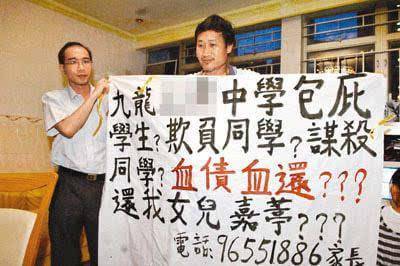 九龍 中學包庇
學生?欺負同學?謀殺
同學?血債血還???
還我女兒嘉葶???
電話:96551886家長